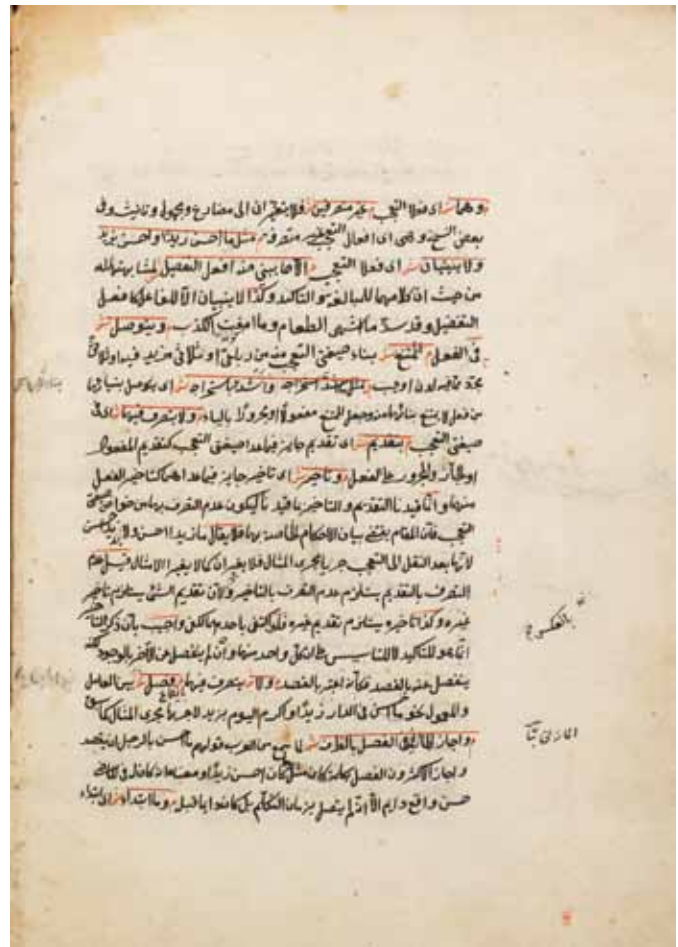 وهما اى فعلا التعجب غير متصرفين فلا يتغيران الى مضارع ومجهول وتانيث وفى
بعض النسخ وهى اى افعال التعجب غير متصرفة مثل ما احسن زيدا واحسن بزيد
ولا يبنيان اى فعلا التعجب الا مما يبنى منه افعل التفضيل لمشابهتهما له
من حيث ان كلا منهما للمبالغة والتاكيد وكذا لا يبنيان الا للفاعل كافعل
التفضيل وقد شذ ما اشهى الطعام وما امقت الكذب ويتوصل
فى الفعل الممتنع بناء صيغتى التعجب منه من رباعى او ثلاثى مزيد فيه او ثلاثى
مجرد مما فيه لون او عيب بمثل ما اشد استخراجه واشدد باستخراجه اى يتوصل ببنائهما
من فعل لا يمتنع بناؤهما منه وجعل الممتنع مفعولا او مجرورا بالباء ولا يتصرف فيهما اى فى
صيغتى التعجب بتقديم اى تقديم جايز فيما عدا صيغتى التعجب كتقديم المفعول
او الجار والمجرور على الفعل وتاخير اى تاخير جايز فيما عداهما كتاخير الفعل
منهما وانما قيدنا التقديم والتاخير بما قيد ليكون عدم التصرف بهما من خواص صيغتى
التعجب فان المقام يقتضى بيان الاحكام الخاصة بهما فلا يقال ما زيدا احسن ولا بزيد احسن
لانهما بعد النقل الى التعجب جريا مجرى المثال فلا يغيران كما لا يغير الامثال قيل عدم
التصرف بالتقديم يستلزم عدم التصرف بالتاخير ولان تقديم الشئ يستلزم تاخير
غيره وكذا تاخيره يستلزم تقديم غيره فلو اكتفى باحدهما لكفى واجيب بان ذكر التاخير
انما هو للتاكيد لا للتاسيس على ان كل واحد منهما وان لم ينفصل عن الاخر بالوجود لكنه
ينفصل عنه بالقصد فكانه اعتبر بالقصد ولا يتصرف فيهما بفصل بين العامل
والمعمول نحو ما احسن فى الدار زيدا واكرم اليوم بزيد لاجرائهما مجرى المثال كما سبق
واجاز المازنى الفصل بالظرف لما سمع من العرب قولهم ما احسن بالرجل ان يصدق
واجاز الاكثرون الفصل بكلمة كان مثل ما كان احسن زيدا ومعناه انه كان له فى الماضى
حسن واقع دايم الا انه لم يتصل بزمان التكلم بل كان دايما قبله وما ابتداء اى ابتداء
بالعكس
المازنى